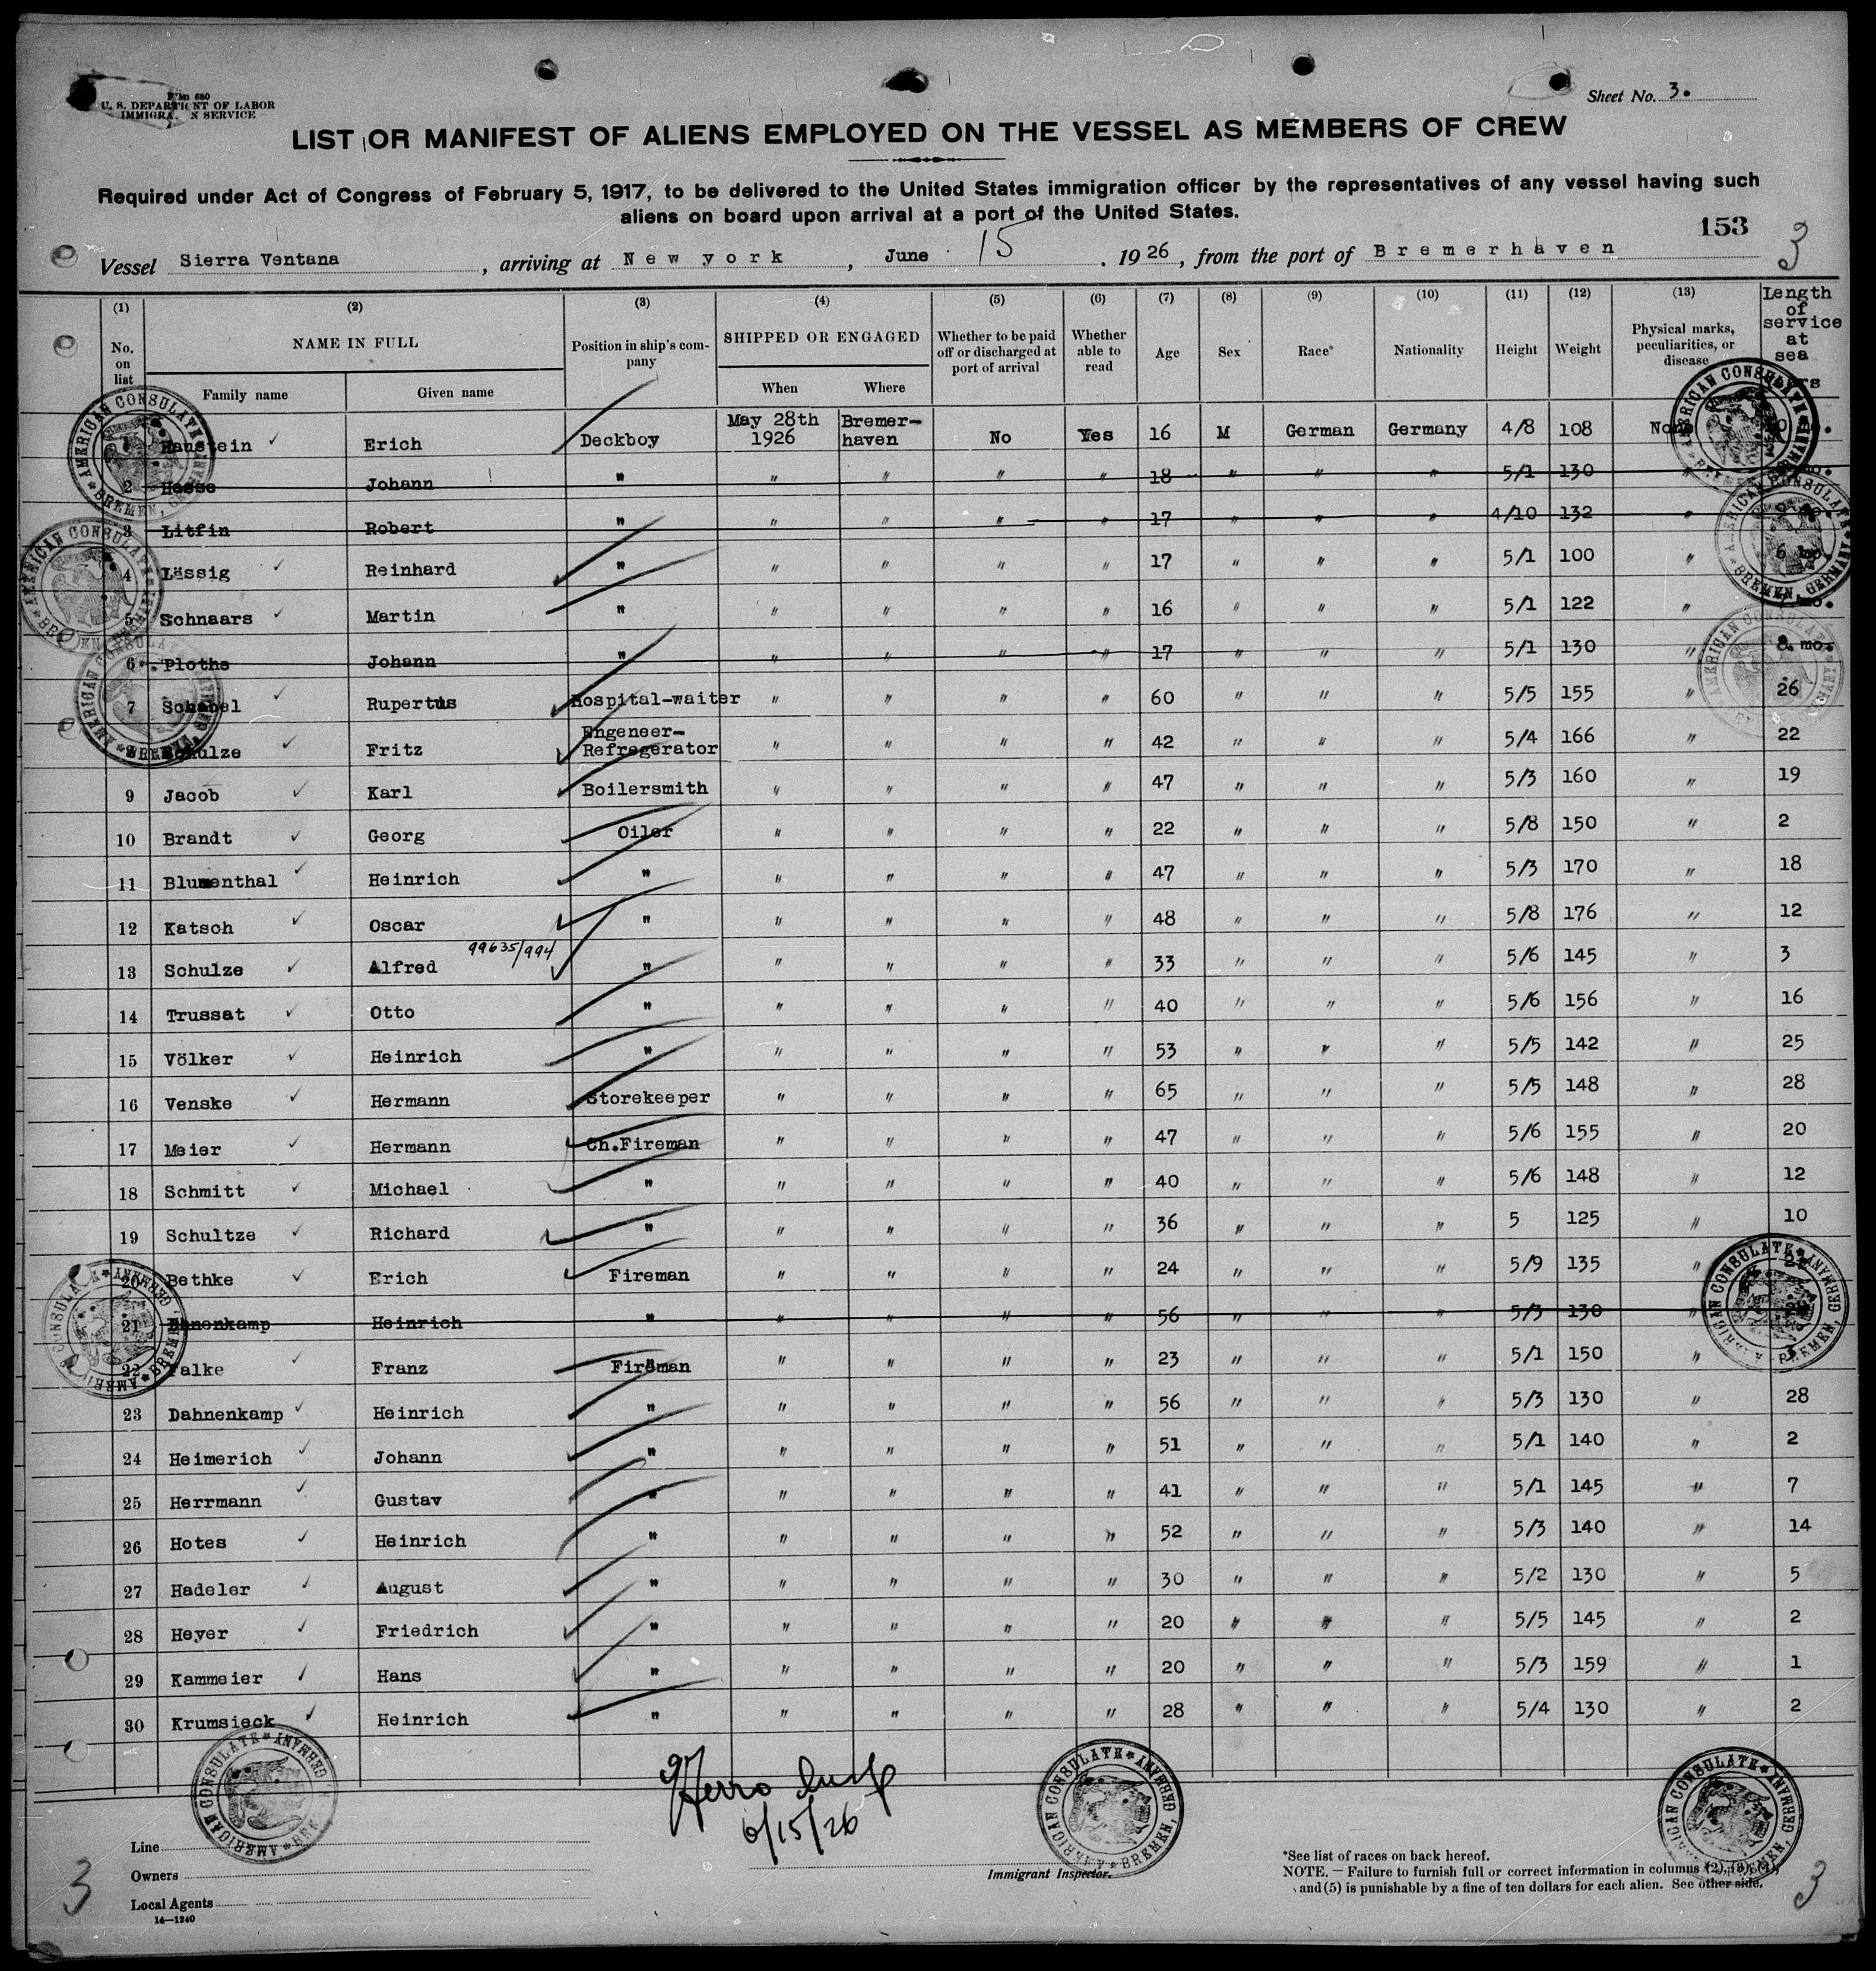 Form 680
U. S. DEPARTMENT OF LABOR
IMMIGRATION SERVICE
Sheet No. 3.
LIST OR MANIFEST OF ALIENS EMPLOYED ON THE VESSEL AS MEMBERS OF CREW
Required under Act of Congress of February 5, 1917, to be delivered to the United States immigration officer by the representatives of any vessel having such
aliens on board upon arrival at a port of the United States.
153
3
Vessel Sierra Ventana, arriving at New york, June 15, 1926, from the port of Bremerhaven
(1) (2) (3) (4) (5) (6) (7) (8) (9) (10) (11) (12) (13) Length of service at sea
No. on list NAME IN FULL Position in ship's company SHIPPED OR ENGAGED Whether to be paid off or discharged at port of arrival Whether able to read Age Sex Race* Nationality Height Weight Physical marks, peculiarities, or disease
Family name Given name When Where
Haustein Erich Deckboy May 28th 1926 Bremerhaven No Yes 16 M German Germany 4/8 108 None
2 Hesse Johann " " " " " 18 " " " 5/1 130 "
3 Litfin Robert " " " " " 17 " " " 4/10 132 "
4 Lässig Reinhard " " " " " 17 " " " 5/1 100 " 6 mo.
5 Schnaars Martin " " " " " 16 " " " 5/1 122 " mo.
6 Plothe Johann " " " " " 17 " " " 5/1 130 " 8 mo.
7 Schabel Rupertus Hospital-waiter " " " " 60 " " " 5/5 155 " 26
8 Schulze Fritz Engeneer-Refregerator " " " " 42 " " " 5/4 166 " 22
9 Jacob Karl Boilersmith " " " " 47 " " " 5/3 160 " 19
10 Brandt Georg Oiler " " " " 22 " " " 5/8 150 " 2
11 Blumenthal Heinrich " " " " " 47 " " " 5/3 170 " 18
12 Katsch Oscar " " " " " 48 " " " 5/8 176 " 12
99635/994
13 Schulze Alfred " " " " " 33 " " " 5/6 145 " 3
14 Trussat Otto " " " " " 40 " " " 5/6 156 " 16
15 Völker Heinrich " " " " " 53 " " " 5/5 142 " 25
16 Venske Hermann Storekeeper " " " " 65 " " " 5/5 148 " 28
17 Meier Hermann Ch.Fireman " " " " 47 " " " 5/6 155 " 20
18 Schmitt Michael " " " " " 40 " " " 5/6 148 " 12
19 Schultze Richard " " " " " 36 " " " 5 125 " 10
20 Bethke Erich Fireman " " " " 24 " " " 5/9 135 "
21 Dhnenkamp Heinrich " " " " " 56 " " " 5/3 130 "
22 Falke Franz Fireman " " " " 23 " " " 5/1 150 " 3
23 Dahnenkamp Heinrich " " " " " 56 " " " 5/3 130 " 28
24 Heimerich Johann " " " " " 51 " " " 5/1 140 " 2
25 Herrmann Gustav " " " " " 41 " " " 5/1 145 " 7
26 Hotes Heinrich " " " " " 52 " " " 5/3 140 " 14
27 Hadeler August " " " " " 30 " " " 5/2 130 " 5
28 Heyer Friedrich " " " " " 20 " " " 5/5 145 " 2
29 Kammeier Hans " " " " " 20 " " " 5/3 159 " 1
30 Krumsieck Heinrich " " " " " 28 " " " 5/4 130 " 2
AMERICAN CONSULATE BREMEN, GERMANY
6/15/26
Line
Owners
Local Agents
14—1240
Immigrant Inspector.
*See list of races on back hereof.
NOTE.—Failure to furnish full or correct information in columns (2), (3), (4),
and (5) is punishable by a fine of ten dollars for each alien. See other side.
3
3